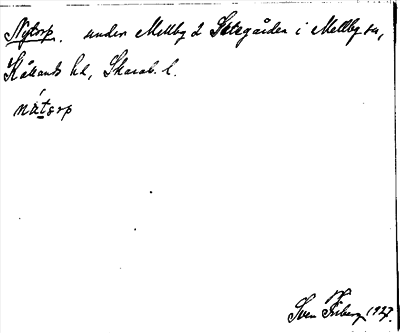 Nytorp. under Mellby 2 Storegården i Mellby sn,
Kållands hd, Skarab. l.
nýtårp
Sven Friberg 1927.